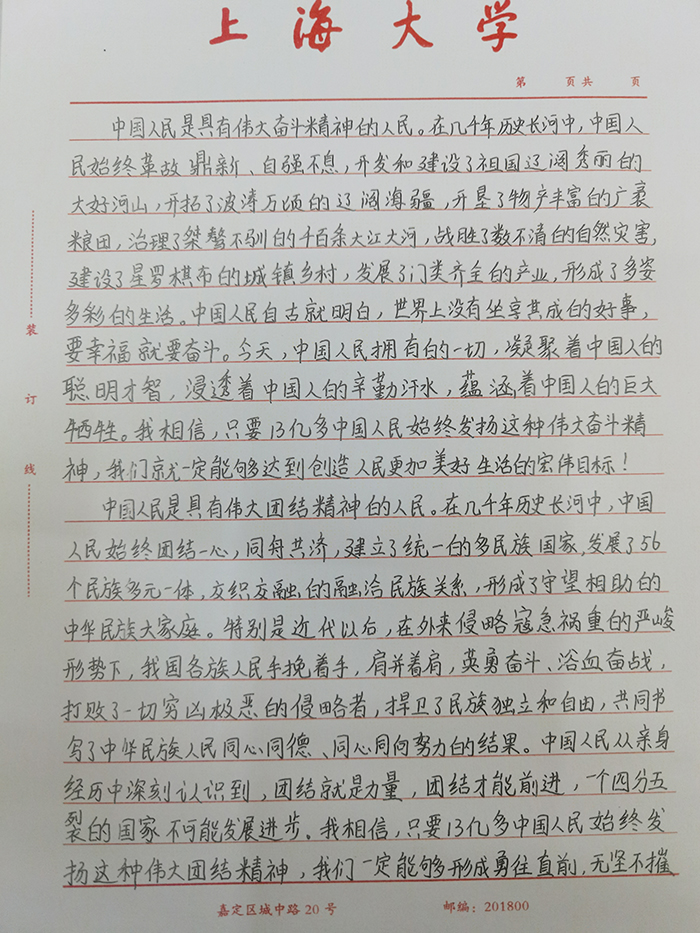 上海大学
第 页共 页
中国人民是具有伟大奋斗精神的人民。在几千年历史长河中，中国人
民始终革故鼎新、自强不息，开发和建设了祖国辽阔秀丽的
大好河山，开拓了波涛万顷的辽阔海疆，开垦了物产丰富的广袤
粮田，治理了桀骜不驯的千百条大江大河，战胜了数不清的自然灾害，
建设了星罗棋布的城镇乡村，发展了门类齐全的产业，形成了多姿
多彩的生活。中国人民自古就明白，世界上没有坐享其成的好事，
要幸福就要奋斗。今天，中国人民拥有的一切，凝聚着中国人的
聪明才智，浸透着中国人的辛勤汗水，蕴涵着中国人的巨大
牺牲。我相信，只要13亿多中国人民始终发扬这种伟大奋斗精
神，我们就一定能够达到创造人民更加美好生活的宏伟目标！
中国人民是具有伟大团结精神的人民。在几千年历史长河中，中国
人民始终团结一心，同舟共济，建立了统一的多民族国家，发展了56
个民族多元一体，交织交融的融洽民族关系，形成了守望相助的
中华民族大家庭。特别是近代以后，在外来侵略寇急祸重的严峻
形势下，我国各族人民手挽着手，肩并着肩，英勇奋斗、浴血奋战，
打败了一切穷凶极恶的侵略者，捍卫了民族独立和自由，共同书
写了中华民族人民同心同德、同心同向努力的结果。中国人民从亲身
经历中深刻认识到，团结就是力量，团结才能前进，一个四分五
裂的国家不可能发展进步。我相信，只要13亿多中国人民始终发
扬这种伟大团结精神，我们一定能够形成勇往直前，无坚不摧
装
订
线
嘉定区城中路20号 邮编：201800